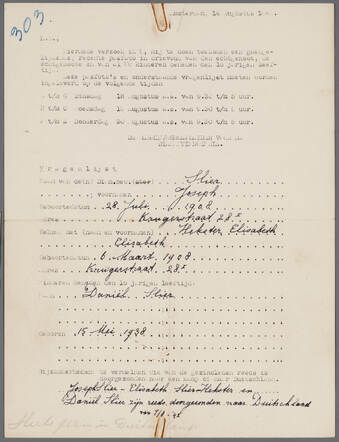 303.
Amsterdam, 16 Augustus
L.S.,
Hiermede verzoek ik U, mij te doen toekomen een goedge-
lijkende, recente pasfoto in drievoud van den echtgenoot, de
echtgenoote en van al de kinderen beneden den 16 jarigen leef-
tijd.
Deze pasfoto's en onderstaande vragenlijst moeten worden
ingeleverd op de volgende tijden
Dinsdag 18 Augustus a.s. van 9.30 tot 5 uur.
Woensdag 19 Augustus a.s. van 9.30 tot 5 uur.
Donderdag 20 Augustus a.s. van 9.30 tot 5 uur.
Vragenlijst
Naam van de(n) Slier
; voornamen Joseph
Geboortedatum 28 Juli 1908
Adres Krugerstraat 28 I
Gehuwd met (naam en voornamen) Hekster, Elisabeth
Elisabeth
Geboortedatum 6 Maart 1908
Adres Krugerstraat 28 I
Kinderen beneden den 16 jarigen leeftijd:
Daniël Slier
Geboren 15 Mei 1938
te vermelden wie van de gezinsleden reeds is
doorgezonden naar een kamp of naar Duitschland.
Joseph Slier - Elisabeth Slier-Hekster en
Daniël Slier zijn reeds doorgezonden naar Duitschland